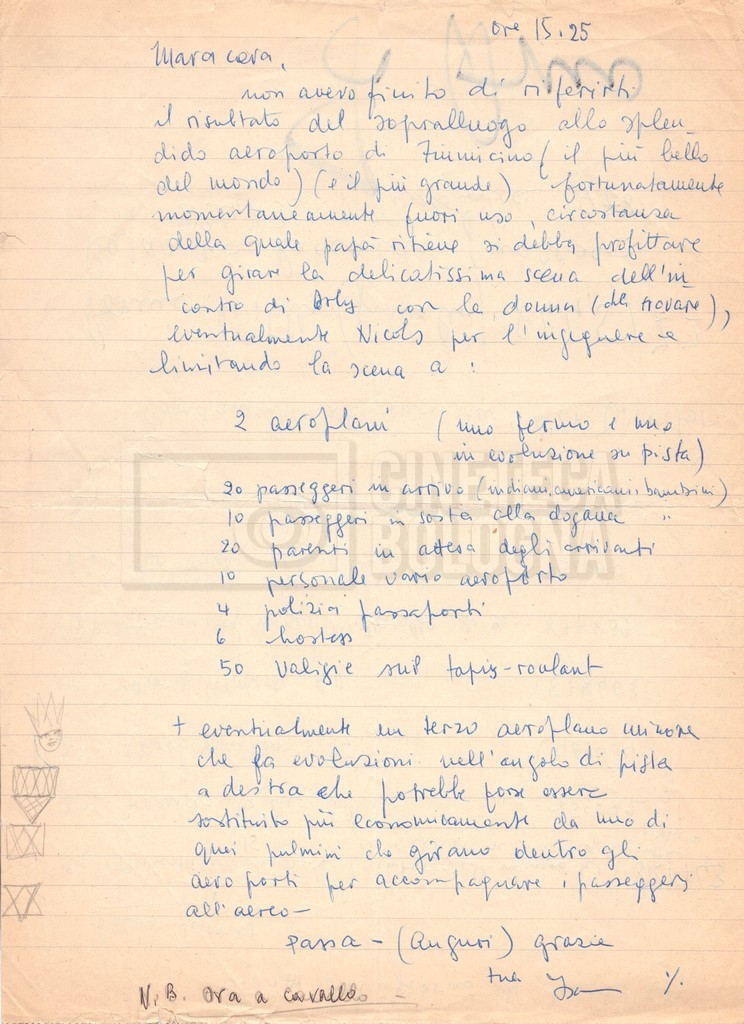 ore 15.25
Mara cara,
non avevo finito di riferirti
il risultato del sopralluogo allo splen-
dido aeroporto di Fiumicino (il più bello
del mondo) (e il più grande) fortunatamente
momentaneamente fuori uso, circostanza
della quale papà ritiene si debba profittare
per girare la delicatissima scena dell'in-
contro di Arly con la donna (da trovare),
eventualmente Nicols per l'ingegnere e
limitando la scena a :
2 aeroplani (uno fermo e uno
in evoluzione su pista)
20 passeggeri in arrivo (indiani, americani, bambini)
10 passeggeri in sosta alla dogana "
20 parenti in attesa degli arrivanti
10 personale vario aeroporto
4 polizia passaporti
6 hostess
50 valigie sul tapis-roulant
+ eventualmente un terzo aeroplano minore
che fa evoluzioni nell'angolo di pista
a destra che potrebbe forse essere
sostituito più economicamente da uno di
quei pulmini che girano dentro gli
aeroporti per accompagnare i passeggeri
all'aereo—
passa - (Auguri) grazie
tua %.
N.B. ora a cavallo —
CINETECA
BOLOGNA